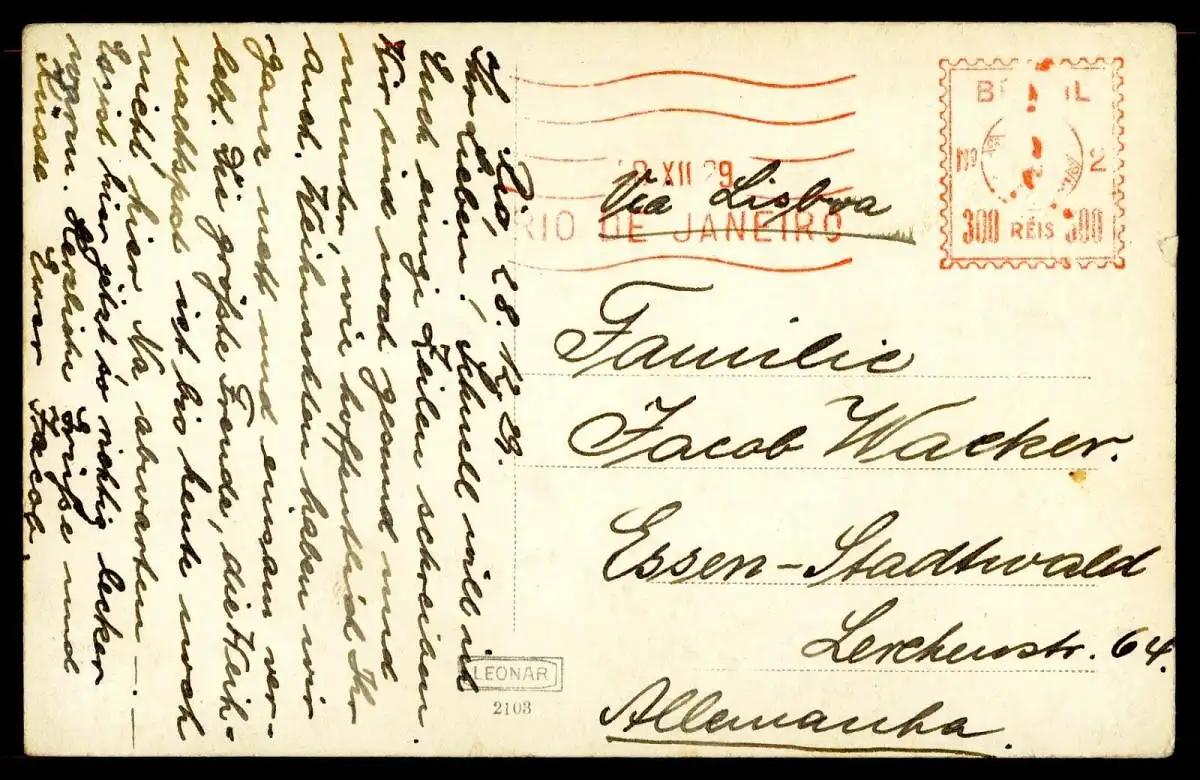 Rio, 28. 12. 29.
Ihr Lieben! Schnell will ich
Euch einige Zeilen schreiben.
Wir sind noch gesund und
munter, wie hoffentlich Ihr
auch. Weihnachten haben wir
ganz nett und einsam ver-
lebt. Die größte Freude, die Weih-
nachtspost ist bis heute noch
nicht hier. Na abwarten —.
Es ist hier jetzt so richtig lecker
warm. Herzliche Grüße und
Küsse Euer Jacob.
XII 29
RIO DE JANEIRO
Via Lisboa
BRASIL
Nº 2
300 RÉIS 300
Familie
Jacob Wacker.
Essen-Stadtwald
Lerchenstr. 64.
Allemanha.
LEONAR
2103